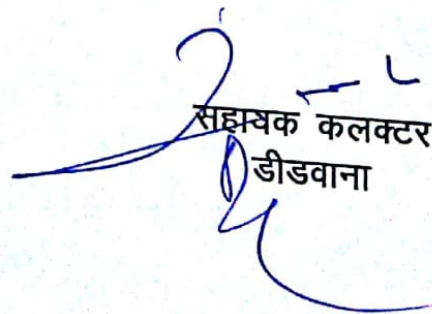 सहायक कलक्टर
डीडवाना